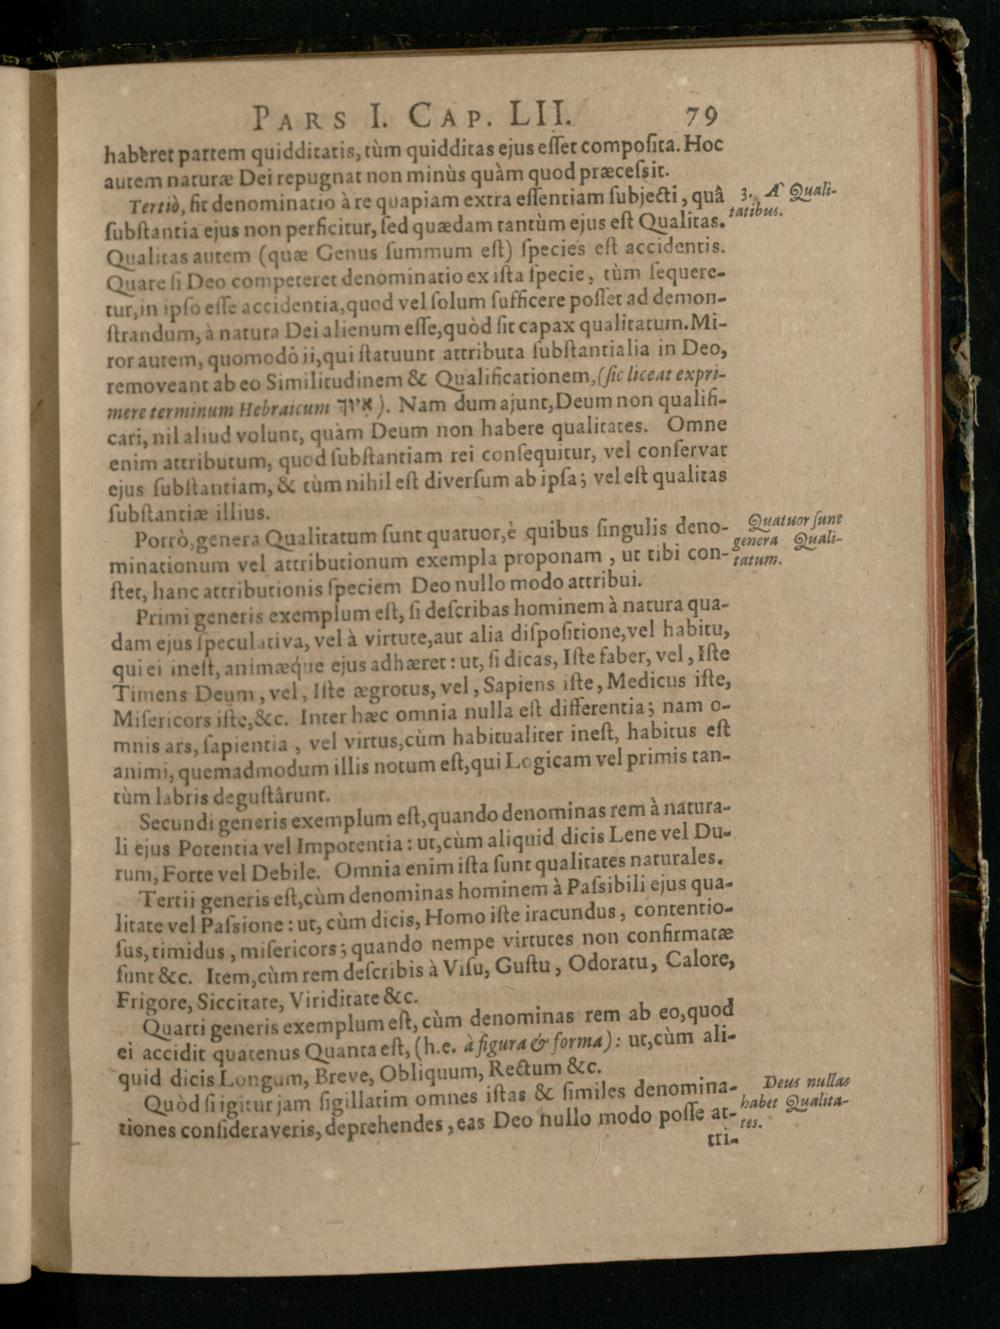 PARS I. CAP. LII. 79
haberet partem quidditatis, tùm quidditas ejus eſſet compoſita. Hoc
autem naturæ Dei repugnat non minùs quàm quod præceſsit.
Tertiò, fit denominatio à re quapiam extra eſſentiam ſubjecti, quâ
ſubſtantia ejus non perficitur, ſed quædam tantùm ejus eſt Qualitas.
3. A Quali-
tatibus.
Qualitas autem (quæ Genus ſummum eſt) ſpecies eſt accidentis.
Quare ſi Deo competeret denominatio ex iſta ſpecie, tùm ſequere-
tur, in ipſo eſſe accidentia, quod vel ſolum ſufficere poſſet ad demon-
ſtrandum, à natura Dei alienum eſſe, quòd ſit capax qualitatum. Mi-
ror autem, quomodò ii, qui ſtatuunt attributa ſubſtantialia in Deo,
removeant ab eo Similitudinem & Qualificationem, (ſic liceat expri-
mere terminum Hebraicum איוך). Nam dum ajunt, Deum non qualifi-
cari, nil aliud volunt, quàm Deum non habere qualitates. Omne
enim attributum, quod ſubſtantiam rei conſequitur, vel conſervat
ejus ſubſtantiam, & tùm nihil eſt diverſum ab ipſa; vel eſt qualitas
ſubſtantiæ illius.
Porrò, genera Qualitatum ſunt quatuor, è quibus ſingulis deno-
minationum vel attributionum exempla proponam, ut tibi con-
ſtet, hanc attributionis ſpeciem Deo nullo modo attribui.
Quatuor ſunt
genera Quali-
tatum.
Primi generis exemplum eſt, ſi deſcribas hominem à natura qua-
dam ejus ſpeculativa, vel à virtute, aut alia diſpoſitione, vel habitu,
qui ei ineſt, animæque ejus adhæret: ut, ſi dicas, Iſte faber, vel, Iſte
Timens Deum, vel, Iſte ægrotus, vel, Sapiens iſte, Medicus iſte,
Miſericors iſte, &c. Inter hæc omnia nulla eſt differentia; nam o-
mnis ars, ſapientia, vel virtus, cùm habitualiter ineſt, habitus eſt
animi, quemadmodum illis notum eſt, qui Logicam vel primis tan-
tùm labris deguſtârunt.
Secundi generis exemplum eſt, quando denominas rem à natura-
li ejus Potentia vel Impotentia: ut, cùm aliquid dicis Lene vel Du-
rum, Forte vel Debile. Omnia enim iſta ſunt qualitates naturales.
Tertii generis eſt, cùm denominas hominem à Paſsibili ejus qua-
litate vel Paſsione: ut, cùm dicis, Homo iſte iracundus, contentio-
ſus, timidus, miſericors; quando nempe virtutes non confirmatæ
ſunt &c. Item, cùm rem deſcribis à Viſu, Guſtu, Odoratu, Calore,
Frigore, Siccitate, Viriditate &c.
Quarti generis exemplum eſt, cùm denominas rem ab eo, quod
ei accidit quatenus Quanta eſt, (h.e. à figura & forma): ut, cùm ali-
quid dicis Longum, Breve, Obliquum, Rectum &c.
Quòd ſi igitur jam ſigillatim omnes iſtas & ſimiles denomina-
tiones conſideraveris, deprehendes, eas Deo nullo modo poſſe at-
Deus nullas
habet Qualita-
tes.
tri-